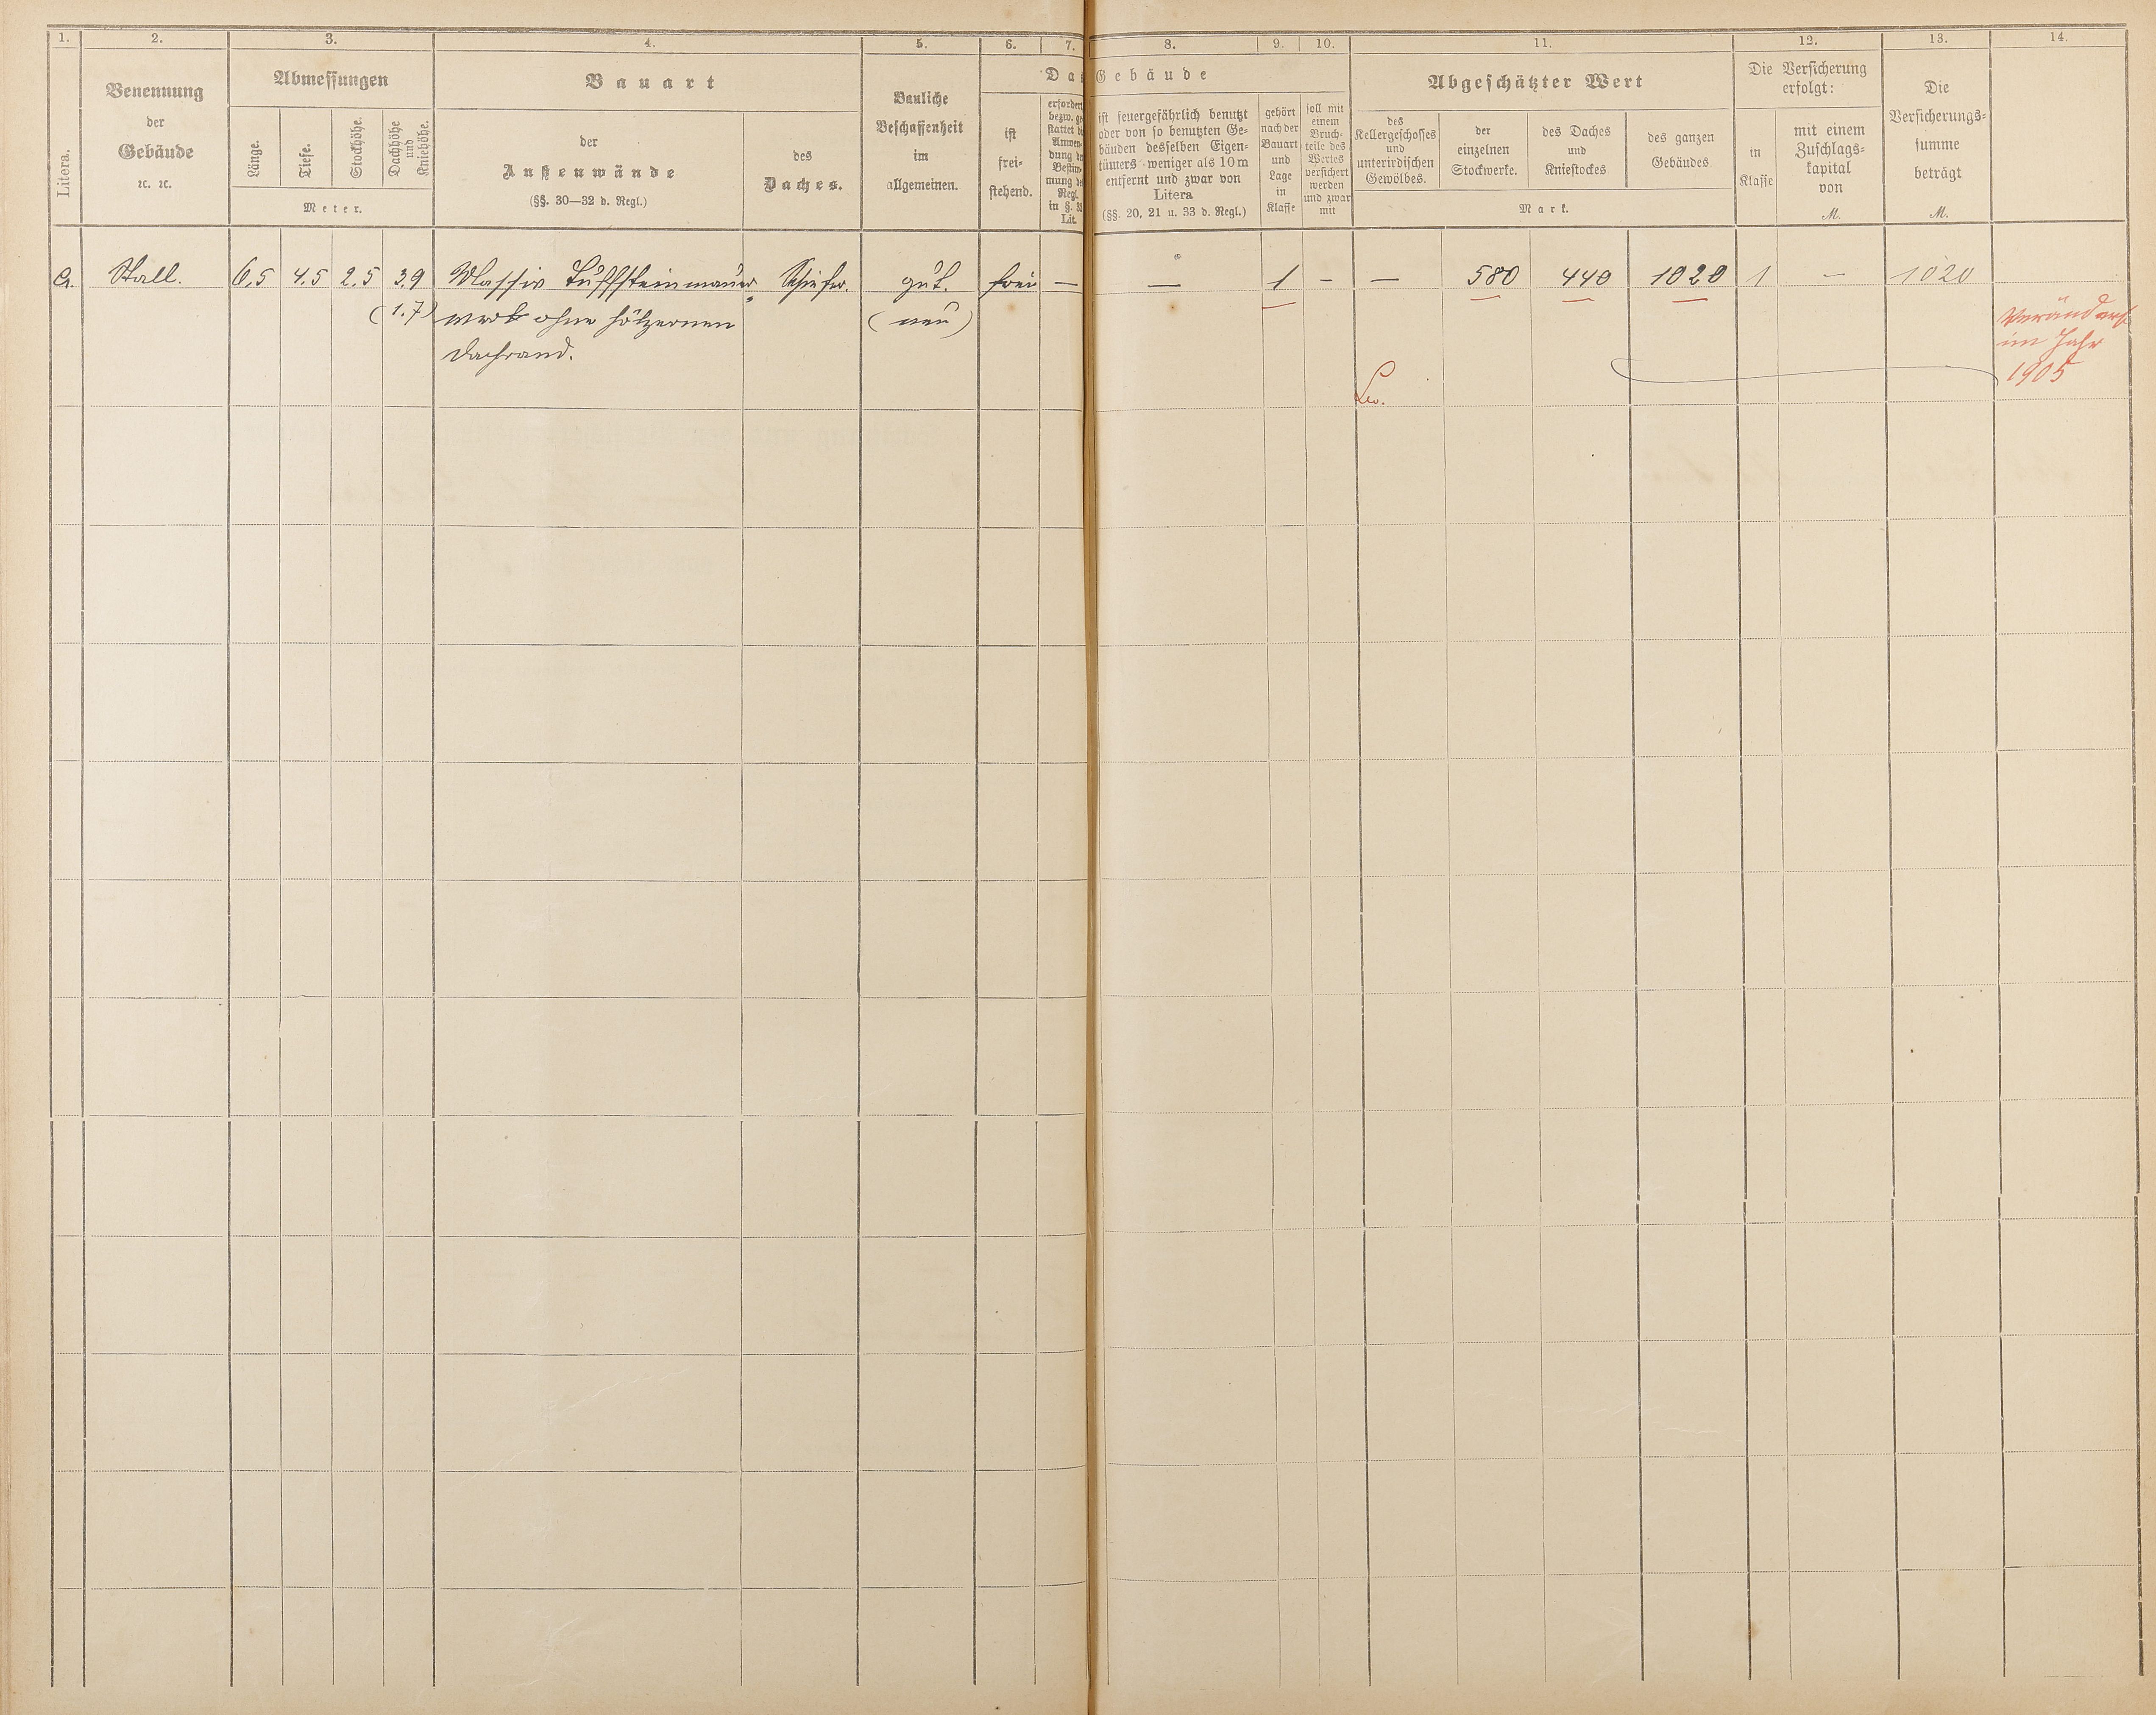 1. 2. 3. 4. 5. 6. 7. 8. 9. 10. 11. 12. 13. 14.
Litera.
Benennung
der
Gebäude
ꝛc. ꝛc.
Abmessungen
Länge.
Tiefe.
Stockhöhe.
Dachhöhe
und
Kniehöhe.
Meter.
Bauart
der
Außenwände
(§§. 30—32 d. Regl.)
des
Daches.
Bauliche
Beschaffenheit
im
allgemeinen.
Das Gebäude
ist
frei-
stehend.
erforder
bezw. ge-
stattet di
Anwen-
dung de
Bestim-
mung de
Regl.
in §. 3
Lit.
ist feuergefährlich benutzt
oder von so benutzten Ge-
bäuden desselben Eigen-
tümers weniger als 10 m
entfernt und zwar von
Litera
(§§. 20, 21 u. 33 d. Regl.)
gehört
nach der
Bauart
und
Lage
in
Klasse
soll mit
einem
Bruch-
teile des
Wertes
versichert
werden
und zwar
mit
Abgeschätzter Wert
des
Kellergeschosses
und
unterirdischen
Gewölbes.
der
einzelnen
Stockwerke.
des Daches
und
Kniestockes
des ganzen
Gebäudes.
Mark.
Die Versicherung
erfolgt:
in
Klasse
mit einem
Zuschlags-
kapital
von
M.
Die
Versicherungs-
summe
beträgt
M.
a. Stall. 6,5 4,5 2,5 3,9 Massiv Tuffsteinmauer- Schiefer. gut. frei — — 1 – — 580 440 1020 1 — 1020
(1.7) werk ohne hölzernen (neu)
Dachrand.
Verändert
im Jahr
1905